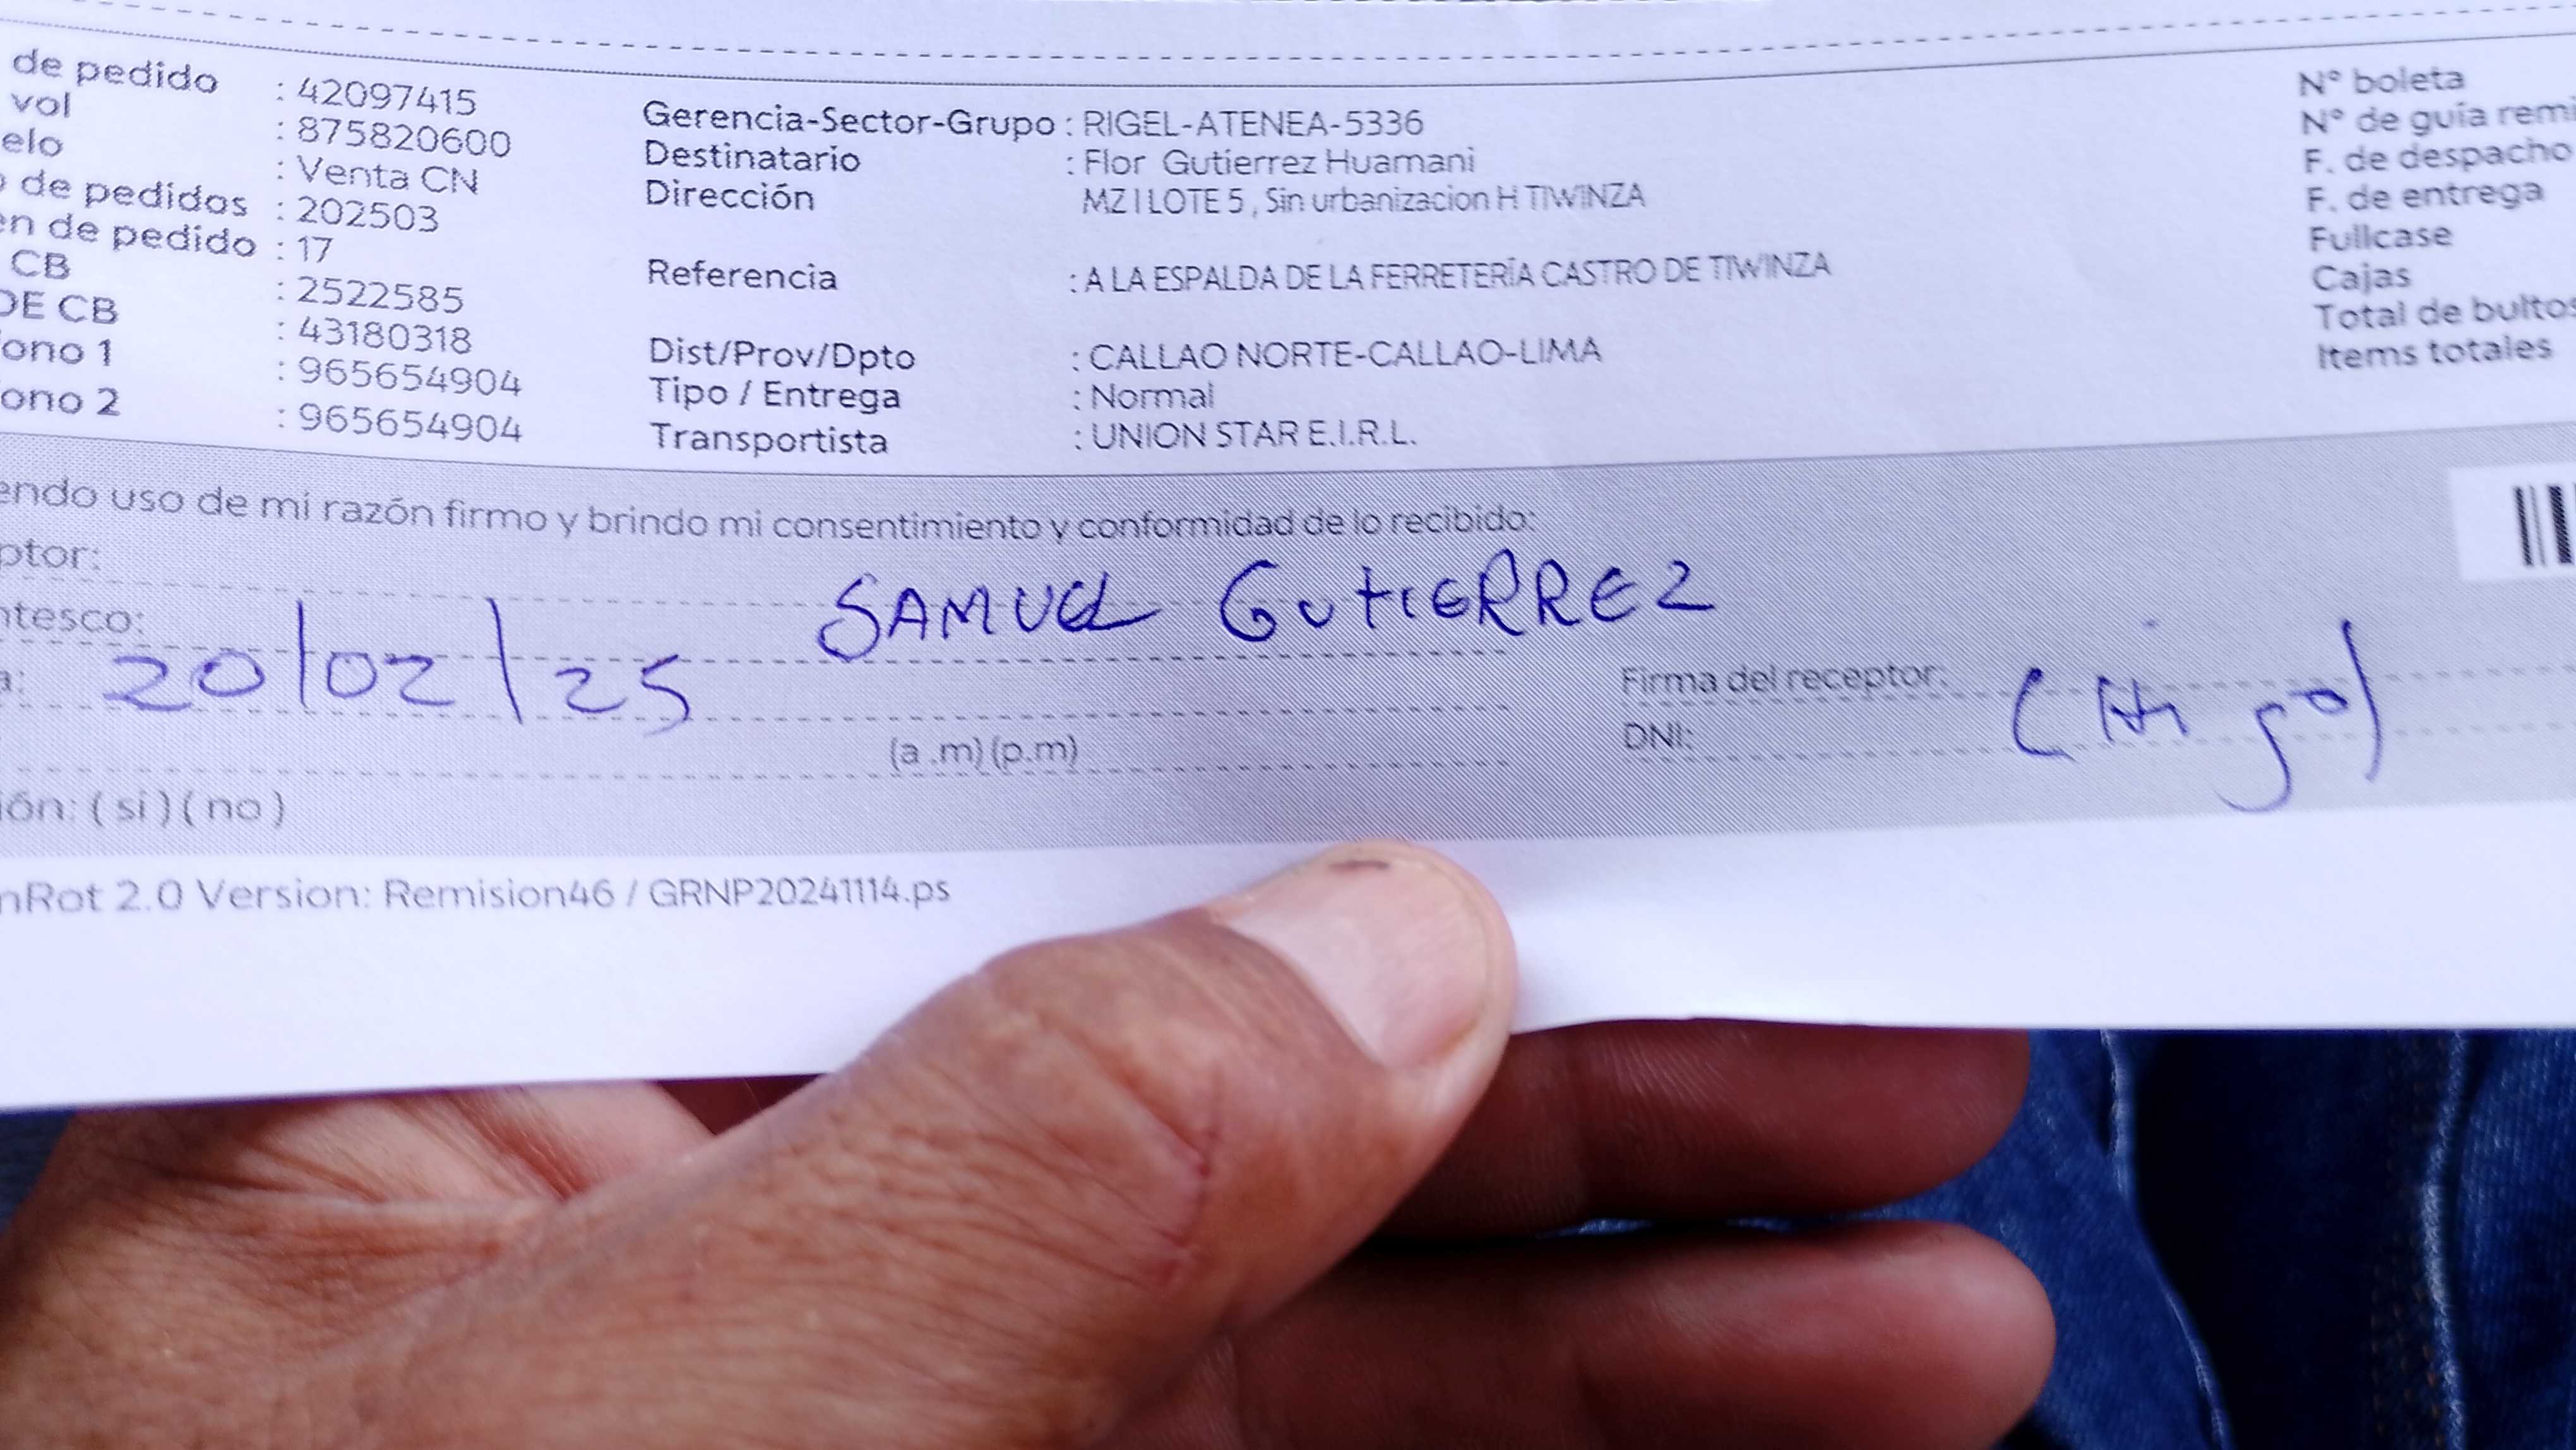 de pedido : 42097415
vol : 875820600
elo : Venta CN
de pedidos : 202503
en de pedido : 17
CB : 2522585
DE CB : 43180318
ono 1 : 965654904
ono 2 : 965654904
Gerencia-Sector-Grupo : RIGEL-ATENEA-5336
Destinatario : Flor Gutierrez Huamani
Dirección MZ I LOTE 5 , Sin urbanizacion H TIWINZA
Referencia : A LA ESPALDA DE LA FERRETERÍA CASTRO DE TIWINZA
Dist/Prov/Dpto : CALLAO NORTE-CALLAO-LIMA
Tipo / Entrega : Normal
Transportista : UNION STAR E.I.R.L.
N° boleta
N° de guía remi
F. de despacho
F. de entrega
Fullcase
Cajas
Total de bultos
Items totales
endo uso de mi razón firmo y brindo mi consentimiento y conformidad de lo recibido:
ptor:
SAMUEL GUTIERREZ
ntesco:
a: 20/02/25
Firma del receptor:
DNI:
(a .m) (p.m)
ión: ( si ) ( no )
nRot 2.0 Version: Remision46 / GRNP20241114.ps